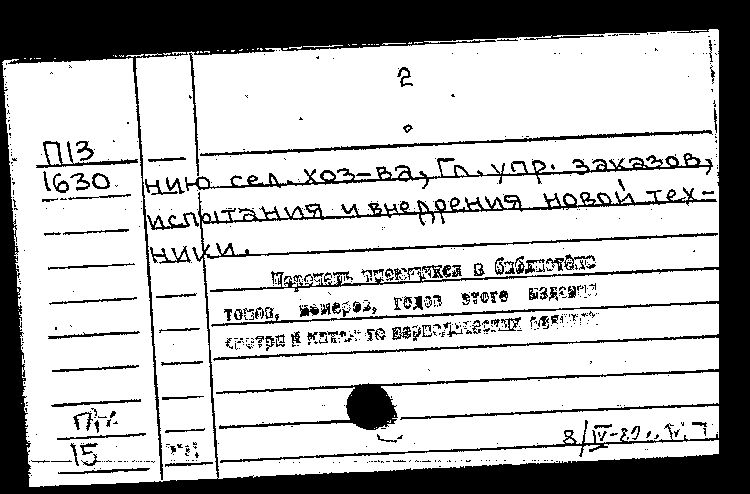 2
П13
1630
нию сел. хоз-ва, Гл. упр. заказов,
испытания и внедрения новой тех-
ники.
Перечень имеющихся в библиотеке
томов, номеров, годов этого издания
смотри в каталоге периодических изданий
15
8/IV-80